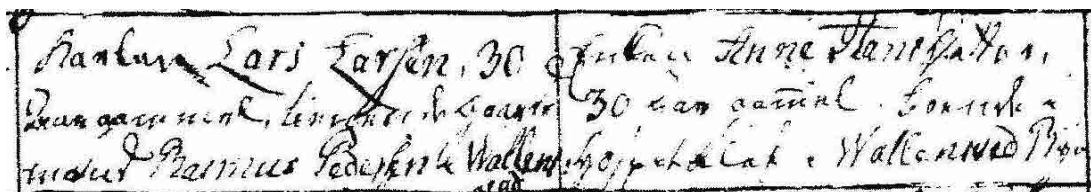 Karlen Lars Larsen, 30
Aar gammel, tienende Gaard
mand Rasmus Pedersen i Wallens
wed
Pigen Anne Hansdatter,
30 aar gam̄el. boende i
Wallenwed Bye